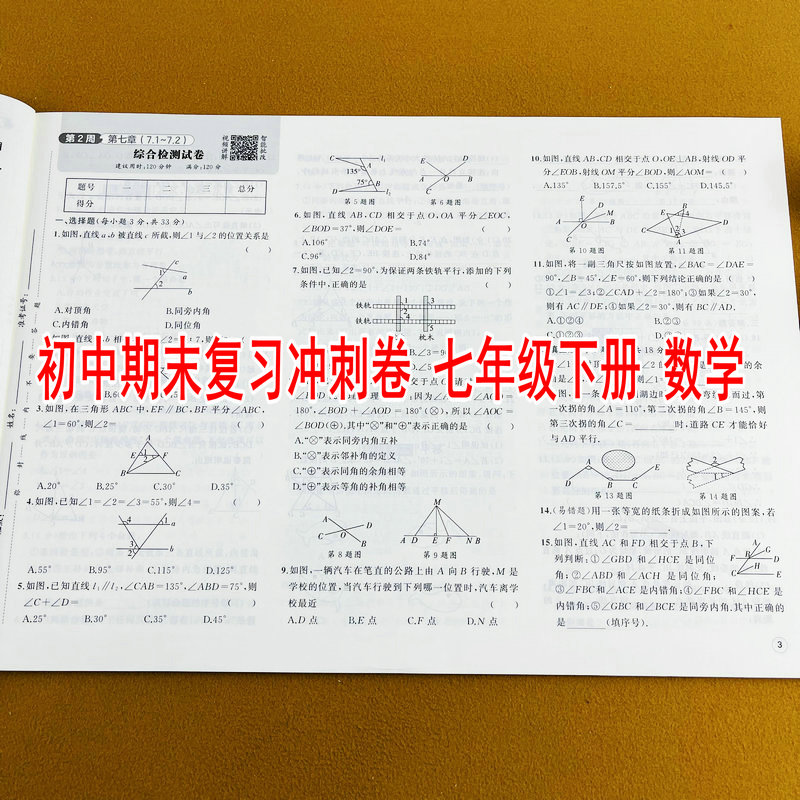 第2周 第七章(7.1~7.2)
综合检测试卷
建议用时:120分钟 满分:120分
视频讲解
智能批改
题号 一 二 三 总分
得分
一、选择题(每小题3分,共33分)
1.如图,直线a,b被直线c所截,则∠1与∠2的位置关系是
( )
A.对顶角 B.同旁内角
C.内错角 D.同位角
3.如图,在三角形ABC中,EF∥BC,BF平分∠ABC,
∠1=60°,则∠2= ( )
A.20° B.25° C.30° D.35°
4.如图,已知∠1=∠2=∠3=55°,则∠4= ( )
A.55° B.95° C.115° D.125°
5.如图,已知直线l₁∥l₂,∠CAB=135°,∠ABD=75°,则
∠C+∠D= ( )
A.25° B.30° C.35° D.45°
135°
75°
第5题图 第6题图
6.如图,直线AB,CD相交于点O,OA平分∠EOC,
∠BOD=37°,则∠DOE= ( )
A.106° B.74°
C.96° D.84°
7.如图,已知∠2=90°,为保证两条铁轨平行,添加的下列
条件中,正确的是 ( )
铁轨
铁轨
枕木
初中期末复习冲刺卷 七年级下册 数学
180°,∠BOD+∠AOD=180°(⊗),所以∠AOC=
∠BOD(⊕),其中“⊗”和“⊕”表示正确的是 ( )
A.“⊗”表示同旁内角互补
B.“⊗”表示邻补角的定义
C.“⊕”表示同角的余角相等
D.“⊕”表示等角的补角相等
第8题图 第9题图
9.如图,一辆汽车在笔直的公路上由A向B行驶,M是
学校的位置,当汽车行驶到下列哪一位置时,汽车离学
校最近 ( )
A.D点 B.E点 C.F点 D.N点
10.如图,直线AB,CD相交于点O,OE⊥AB,射线OD平
分∠EOB,射线OM平分∠BOD,则∠AOM= ( )
A.135° B.157.5° C.155° D.145.5°
第10题图 第11题图
11.如图,将一副三角尺按如图放置,∠BAC=∠DAE=
90°,∠B=45°,∠E=60°,则下列结论正确的是 ( )
①∠1=∠3;②∠CAD+∠2=180°;③如果∠2=30°,
则有AC∥DE;④如果∠2=30°,则有BC∥AD.
A.①②④ B.②③
次拐的角∠A=110°,第二次拐的角∠B=145°,则
第三次拐的角∠C=____时,道路CE才能恰好
与AD平行.
第13题图 第14题图
14.(易错题)用一张等宽的纸条折成如图所示的图案,若
∠1=20°,则∠2=____.
15.如图,直线AC和FD相交于点B,下
列判断:①∠GBD和∠HCE是同位
角;②∠ABD和∠ACH是同位角;
③∠FBC和∠ACE是内错角;④∠FBC和∠HCE是
内错角;⑤∠GBC和∠BCE是同旁内角.其中正确的
是____(填序号).
3